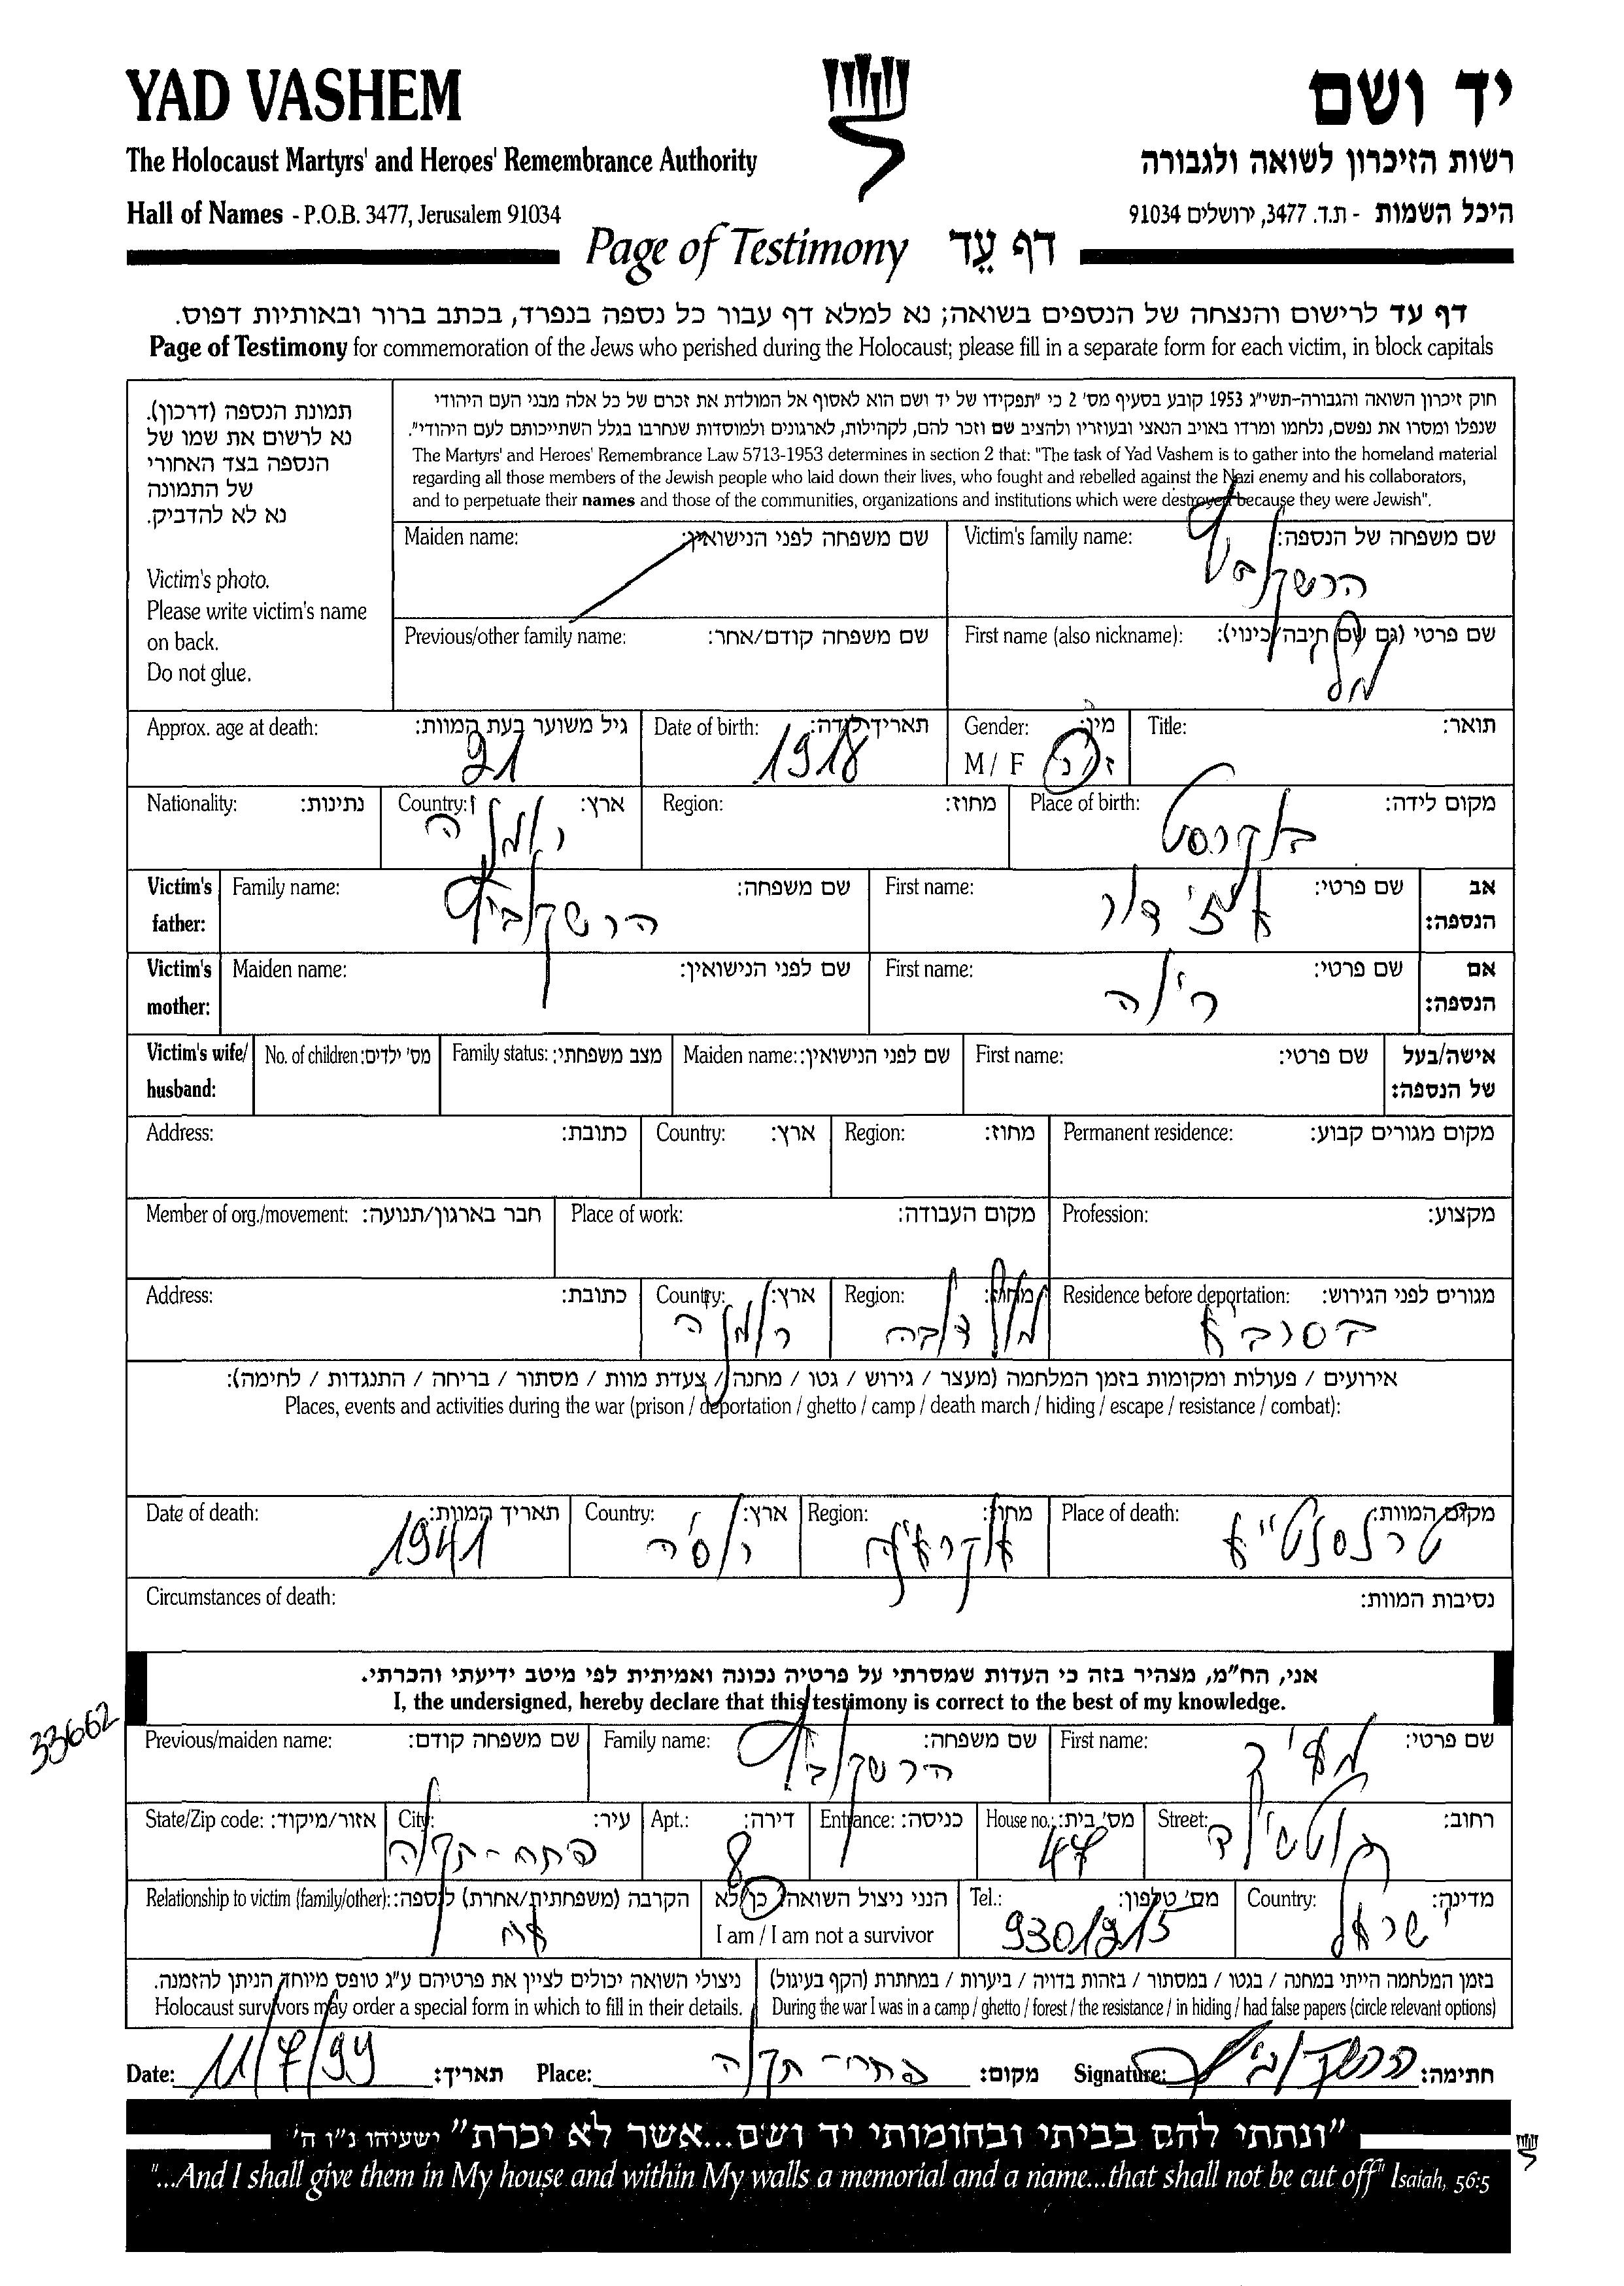 YAD VASHEM
יד ושם
The Holocaust Martyrs' and Heroes' Remembrance Authority
רשות הזיכרון לשואה ולגבורה
Hall of Names - P.O.B. 3477, Jerusalem 91034
היכל השמות - ת.ד. 3477, ירושלים 91034
Page of Testimony דף עֵד
דף עד לרישום והנצחה של הנספים בשואה; נא למלא דף עבור כל נספה בנפרד, בכתב ברור ובאותיות דפוס.
Page of Testimony for commemoration of the Jews who perished during the Holocaust; please fill in a separate form for each victim, in block capitals
תמונת הנספה (דרכון).
נא לרשום את שמו של
הנספה בצד האחורי
של התמונה
נא לא להדביק.
Victim's photo.
Please write victim's name
on back.
Do not glue.
חוק זיכרון השואה והגבורה-תשי"ג 1953 קובע בסעיף מס' 2 כי "תפקידו של יד ושם הוא לאסוף אל המולדת את זכרם של כל אלה מבני העם היהודי
שנפלו ומסרו את נפשם, נלחמו ומרדו באויב הנאצי ובעוזריו ולהציב שם וזכר להם, לקהילות, לארגונים ולמוסדות שנחרבו בגלל השתייכותם לעם היהודי".
The Martyrs' and Heroes' Remembrance Law 5713-1953 determines in section 2 that: "The task of Yad Vashem is to gather into the homeland material
regarding all those members of the Jewish people who laid down their lives, who fought and rebelled against the Nazi enemy and his collaborators,
and to perpetuate their names and those of the communities, organizations and institutions which were destroyed because they were Jewish".
Maiden name: שם משפחה לפני הנישואין:
Victim's family name: שם משפחה של הנספה:
הרשקוביץ
Previous/other family name: שם משפחה קודם/אחר:
First name (also nickname): שם פרטי (גם שם חיבה/כינוי):
Approx. age at death: גיל משוער בעת המוות:
21
Date of birth: תאריך לידה:
1918
Gender: מין:
M / F ז / נ
Title: תואר:
Nationality: נתינות:
Country: ארץ:
רומניה
Region: מחוז:
Place of birth: מקום לידה:
בוקרסט
Victim's father:
Family name: שם משפחה:
הרשקוביץ
First name: שם פרטי:
איזידור
אב הנספה:
Victim's mother:
Maiden name: שם לפני הנישואין:
First name: שם פרטי:
אם הנספה:
Victim's wife/ husband:
No. of children: מס' ילדים:
Family status: מצב משפחתי:
Maiden name: שם לפני הנישואין:
First name: שם פרטי:
אישה/בעל של הנספה:
Address: כתובת:
Country: ארץ:
Region: מחוז:
Permanent residence: מקום מגורים קבוע:
Member of org./movement: חבר בארגון/תנועה:
Place of work: מקום העבודה:
Profession: מקצוע:
Address: כתובת:
Country: ארץ:
רומניה
Region: מחוז:
מולדובה
Residence before deportation: מגורים לפני הגירוש:
אירועים / פעולות ומקומות בזמן המלחמה (מעצר / גירוש / גטו / מחנה / צעדת מוות / מסתור / בריחה / התנגדות / לחימה):
Places, events and activities during the war (prison / deportation / ghetto / camp / death march / hiding / escape / resistance / combat):
Date of death: תאריך המוות:
1941
Country: ארץ:
רוסיה
Region: מחוז:
Place of death: מקום המוות:
Circumstances of death: נסיבות המוות:
אני, הח"מ, מצהיר בזה כי העדות שמסרתי על פרטיה נכונה ואמיתית לפי מיטב ידיעתי והכרתי.
I, the undersigned, hereby declare that this testimony is correct to the best of my knowledge.
33662
Previous/maiden name: שם משפחה קודם:
Family name: שם משפחה:
הרשקוביץ
First name: שם פרטי:
State/Zip code: אזור/מיקוד:
City: עיר:
פתח-תקוה
Apt.: דירה:
8
Entrance: כניסה:
House no.: מס' בית:
47
Street: רחוב:
רוטשילד
Relationship to victim (family/other): הקרבה (משפחתית/אחרת) לנספה:
אח
הנני ניצול השואה: כן/לא
I am / I am not a survivor
Tel.: מס' טלפון:
9301215
Country: מדינה:
ישראל
ניצולי השואה יכולים לציין את פרטיהם ע"ג טופס מיוחד הניתן להזמנה.
Holocaust survivors may order a special form in which to fill in their details.
בזמן המלחמה הייתי במחנה / בגטו / במסתור / בזהות בדויה / ביערות / במחתרת (הקף בעיגול)
During the war I was in a camp / ghetto / forest / the resistance / in hiding / had false papers (circle relevant options)
Date: 11/7/99 תאריך:
Place: פתח-תקוה מקום:
Signature: הרשקוביץ חתימה:
"ונתתי להם בביתי ובחומותי יד ושם...אשר לא יכרת" ישעיהו נ"ו ה'
"...And I shall give them in My house and within My walls a memorial and a name...that shall not be cut off" Isaiah, 56:5